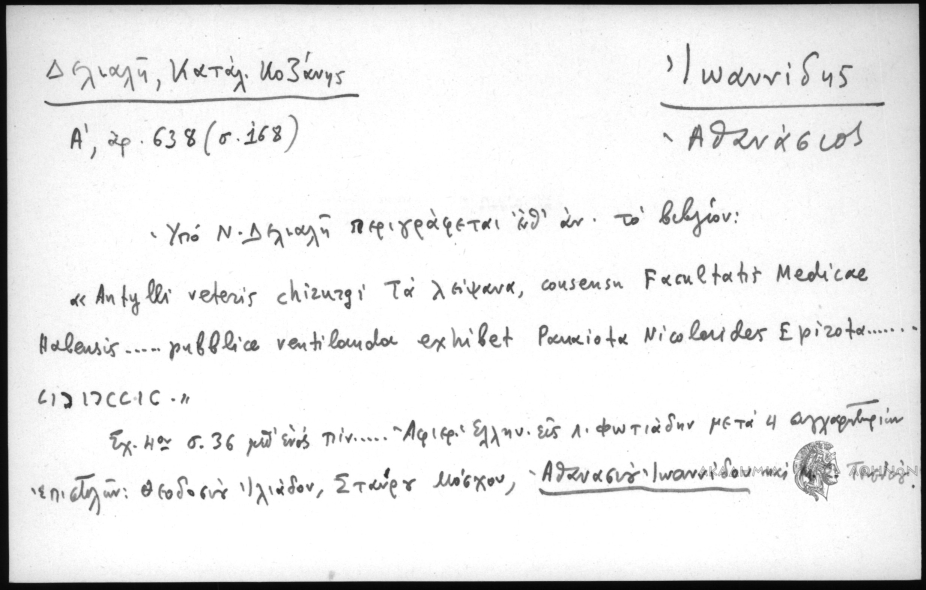 Δελιαλῆ, Κατάλ. Κοζάνης
Ἰωαννίδης
Α', ἀρ. 638 (σ. 168)
Ἀθανάσιος
Ὑπό Ν. Δελιαλῆ περιγράφεται ὑπ' ἀν. τό βιβλίον:
« Antylli veteris chirurgi Τά λείψανα, consensu Facultatis Medicae
Halensis ..... pubblice ventilanda exhibet Panaiota Nicolaides Epirota.......
CIƆIƆCCIC . »
Σχ. 4ον σ. 36 μεθ' ἑνός πίν..... Ἀφιερ. Ἑλλην. εἰς Λ. Φωτιάδην μετά 4 συγχαρητηρίων
ἐπιστολῶν: Θεοδοσίου Ἠλιάδου, Σταύρου Μόσχου, Ἀθανασίου Ἰωαννίδου καί